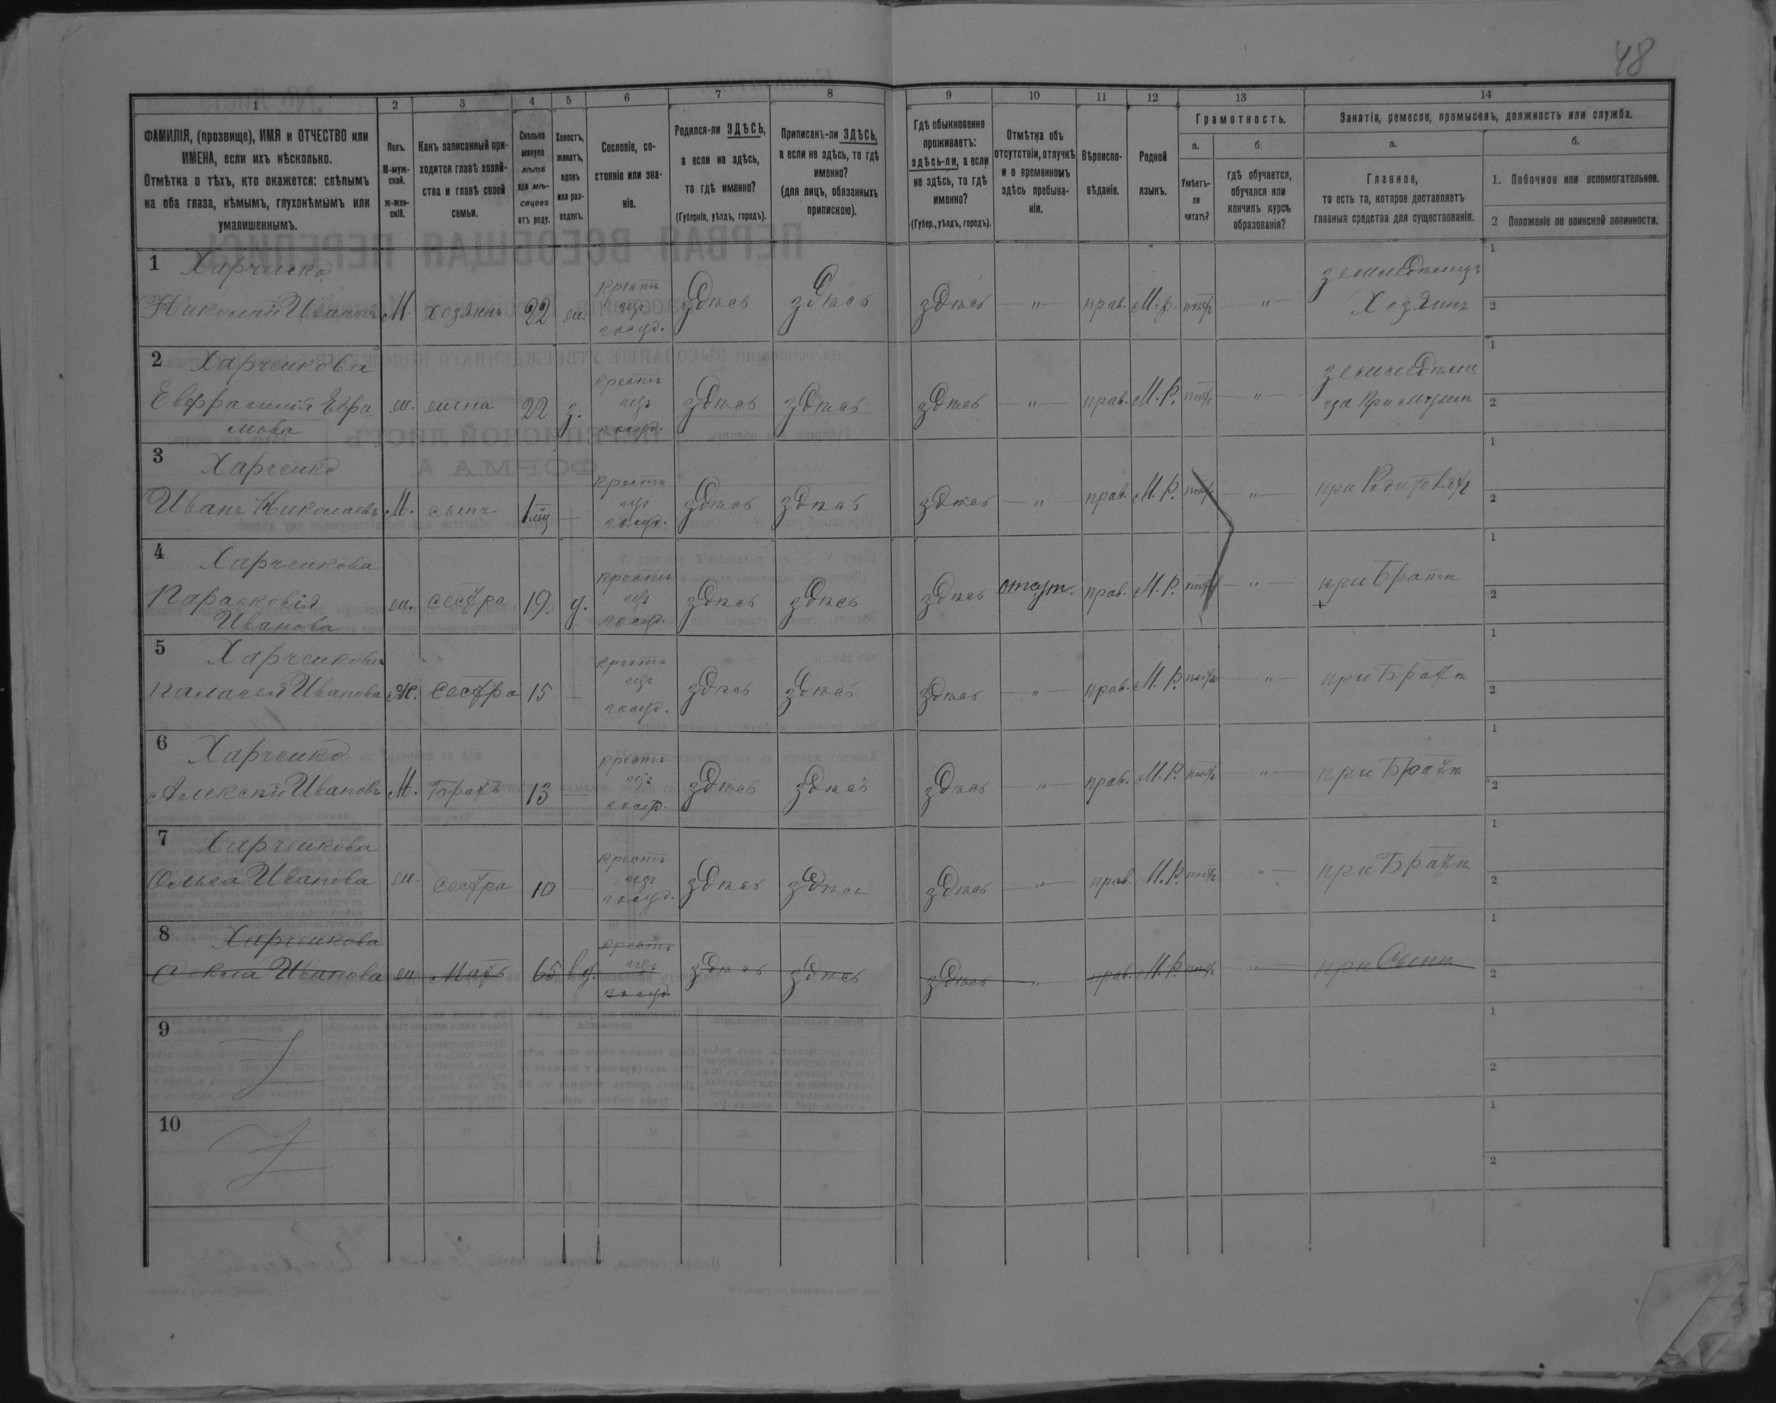 48
1 2 3 4 5 6 7 8 9 10 11 12 13 14
ФАМИЛІЯ, (прозвище), ИМЯ и ОТЧЕСТВО или
ИМЕНА, если ихъ нѣсколько.
Отмѣтка о тѣхъ, кто окажется: слѣпымъ
на оба глаза, нѣмымъ, глухонѣмымъ или
умалишеннымъ.
Полъ.
М-муж-
ской.
ж-жен-
скій.
Какъ записанный при-
ходится главѣ хозяй-
ства и главѣ своей
семьи.
Сколько
минуло
лѣтъ
или мѣ-
сяцевъ
отъ роду.
Холостъ,
женатъ,
вдовъ
или раз-
веденъ.
Сословіе, со-
стояніе или зва-
ніе.
Родился-ли ЗДѢСЬ,
а если не здѣсь,
то гдѣ именно?
(Губернія, уѣздъ, городъ).
Приписанъ-ли ЗДѢСЬ,
а если не здѣсь, то гдѣ
именно?
(для лицъ, обязанныхъ
припискою).
Гдѣ обыкновенно
проживаетъ:
здѣсь-ли, а если
не здѣсь, то гдѣ
именно?
(Губер., уѣздъ, городъ).
Отмѣтка объ
отсутствіи, отлучкѣ
и о временномъ
здѣсь пребыва-
ніи.
Вѣроиспо-
вѣданіе.
Родной
языкъ.
Грамотность.
а.
Умѣетъ-
ли
читать?
б.
гдѣ обучается,
обучался или
кончилъ курсъ
образованія?
Занятія, ремесло, промыселъ, должность или служба.
а.
Главное,
то есть то, которое доставляетъ
главныя средства для существованія.
б.
1. Побочное или вспомогательное.
2 Положеніе по воинской повинности.
1 Харченко
Николай Ивановъ М. хозяинъ 22 ж. крестъ изъ госуд. здѣсь здѣсь здѣсь — " — прав. М. р. нѣтъ — " — земледѣлецъ
Хозяинъ 1 2
2 Харченкова
Евфрасинія Ефра
мова ж. жена 22 з. крестъ изъ госуд. здѣсь здѣсь здѣсь — " — прав. М. Р. нѣтъ — " — земледѣли
ца при мужѣ 1 2
3 Харченко
Иванъ Николаевъ М. сынъ 1 — крестъ изъ госуд. здѣсь здѣсь здѣсь — " — прав. М. Р. нѣтъ — " — при Родителяхъ 1 2
4 Харченкова
Парасковія
Иванова ж. сестра 19. д. крестъ изъ госуд. здѣсь здѣсь здѣсь отсут. прав. М. Р. нѣтъ — " — при Братѣ 1 2
5 Харченкова
Палагея Иванова Ж. сестра 15 — крестъ изъ госуд. здѣсь здѣсь здѣсь — " — прав. М. Р. нѣтъ — " — при Братѣ 1 2
6 Харченко
Алексѣй Ивановъ М. Братъ 13 — крестъ изъ госуд. здѣсь здѣсь здѣсь — " — прав. М. Р. нѣтъ — " — при Братѣ 1 2
7 Харченкова
Ольга Иванова ж. сестра 10 — крестъ изъ госуд. здѣсь здѣсь здѣсь — " — прав. М. Р. нѣтъ — " — при Братѣ 1 2
8 Харченкова
Иванова ж. Мать 65 вд. крестъ изъ госуд. здѣсь здѣсь здѣсь — " — прав. М. Р. нѣтъ — " — при Сынѣ 1 2
9 1 2
10 1 2